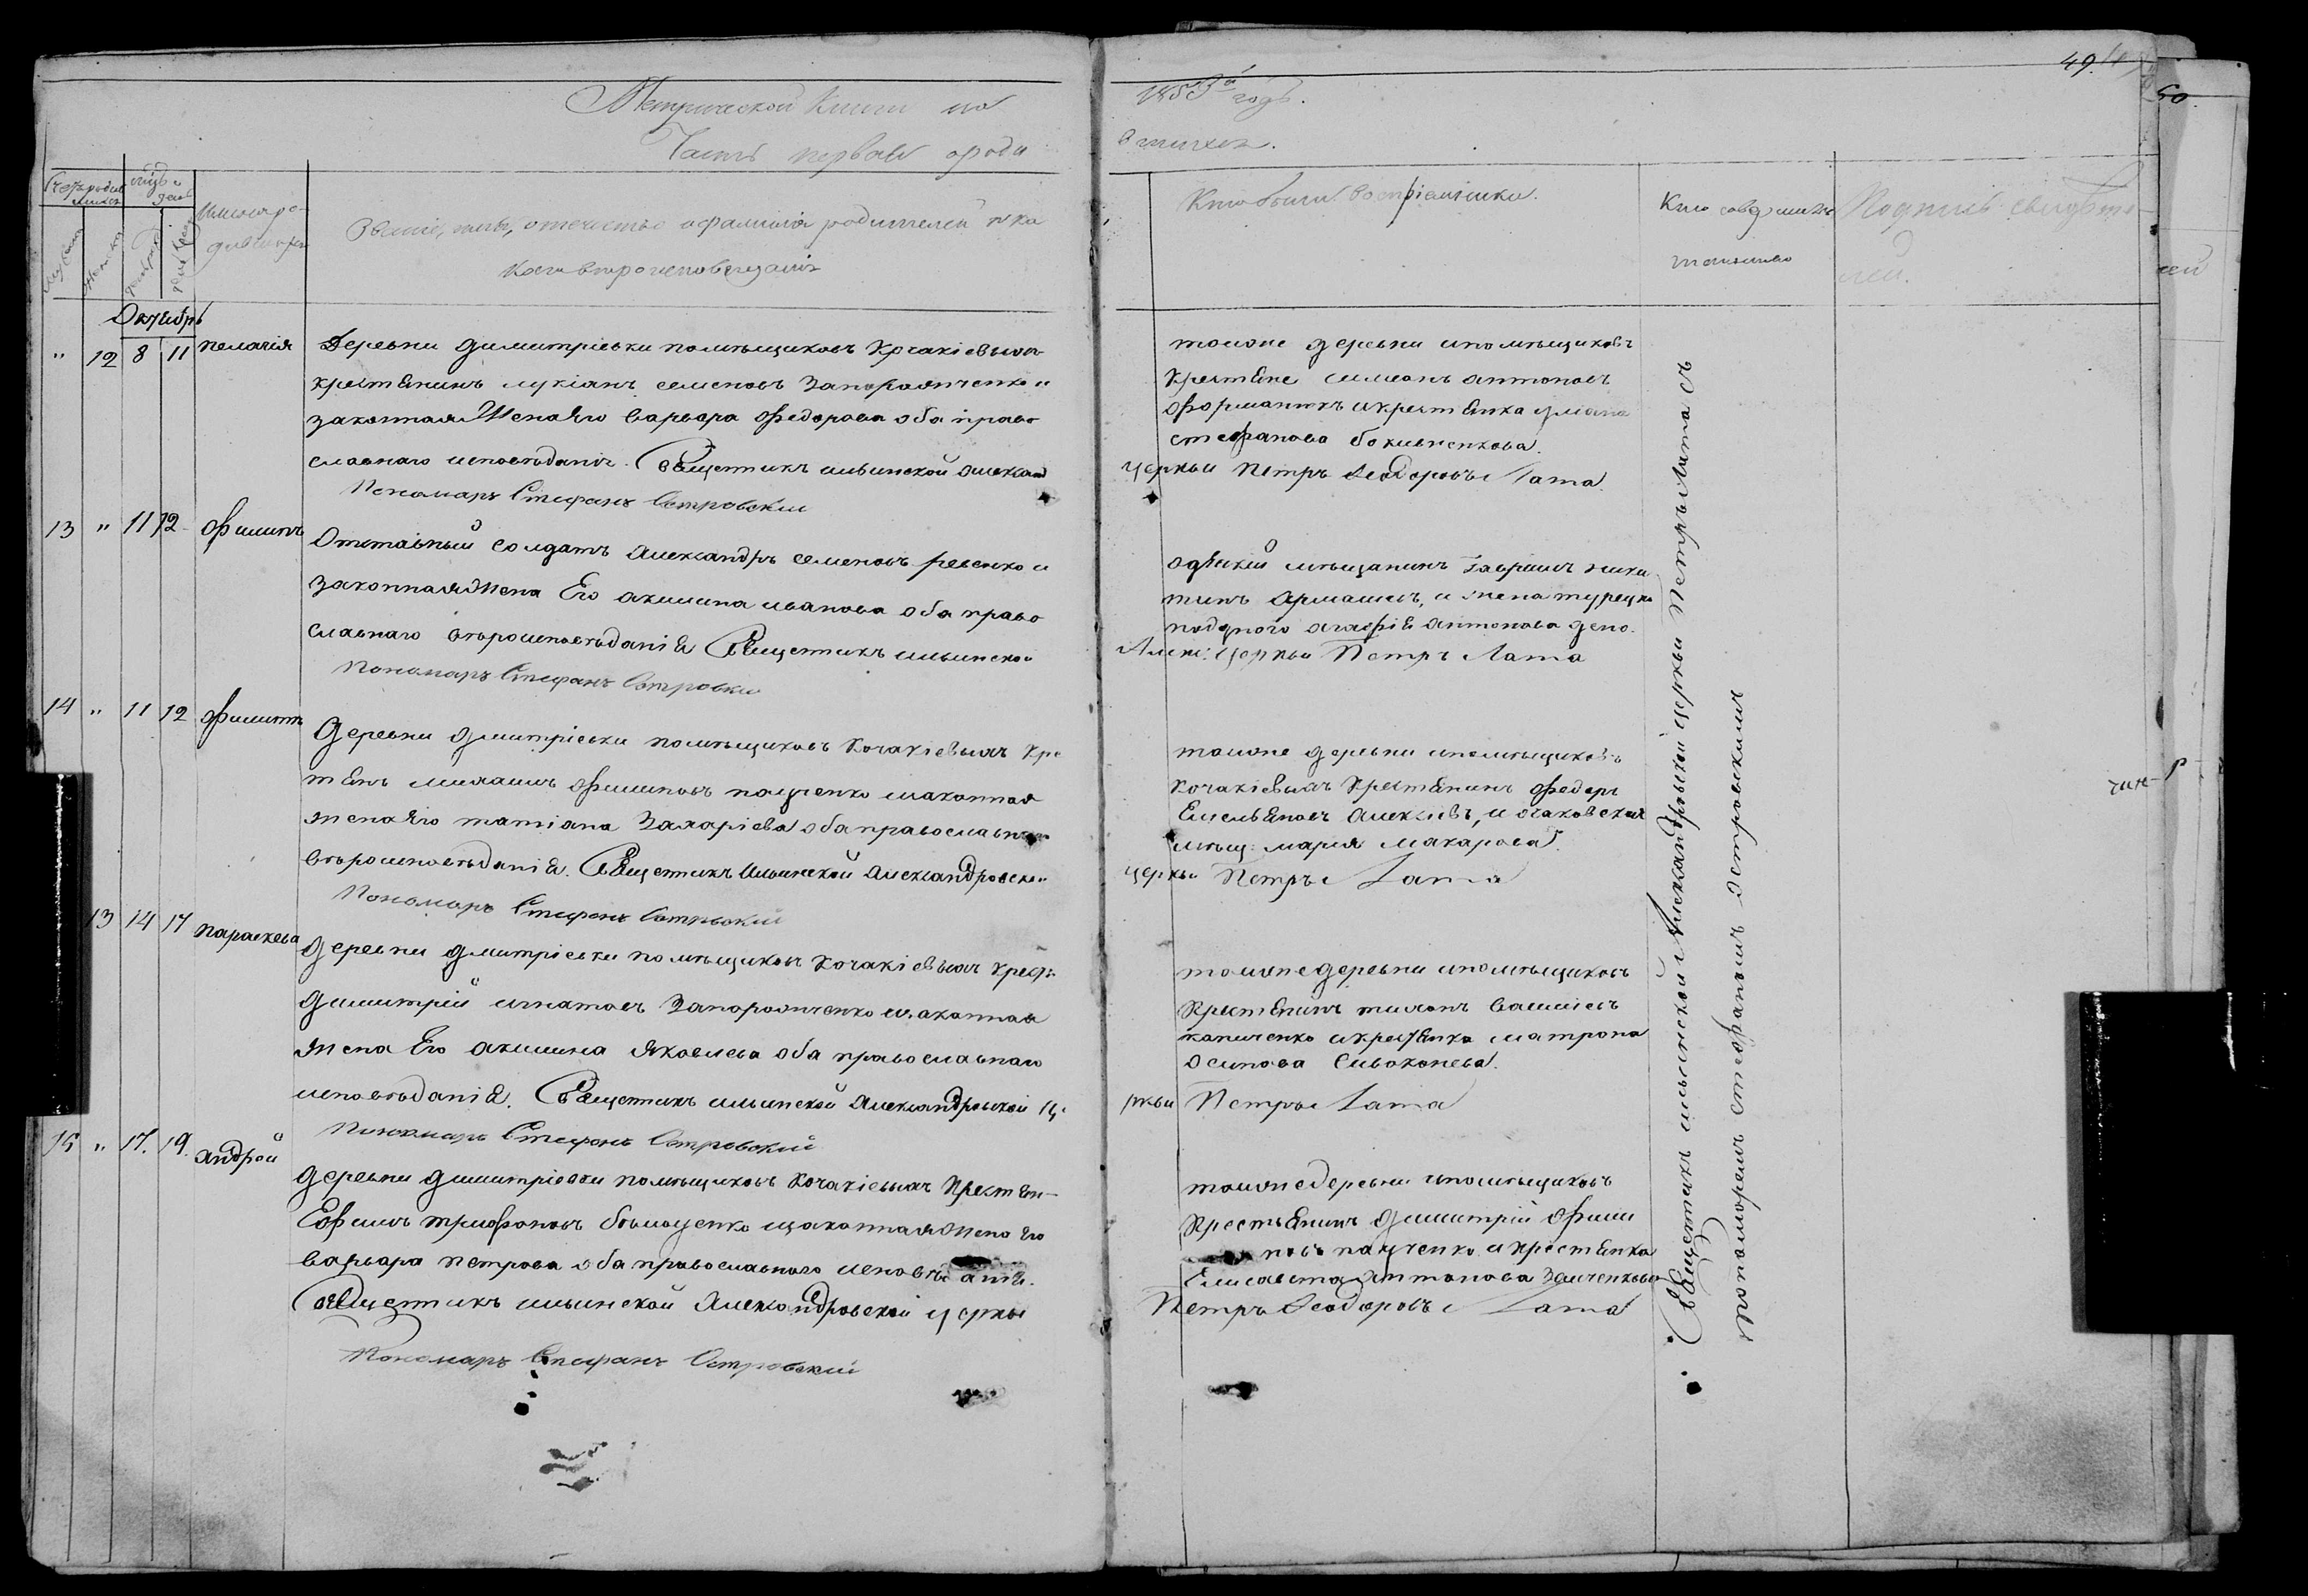 49.
50
Метрической Книги на
1853й годъ.
Часть первая о роди
вшихся.
Имена ро-
дившихся
Званіе, имя, отечество и фамилія родителей и ка
кого вѣроисповеданія
Кто были воспріемники.
Кто совершилъ
таинство
Подпись свидѣте
лей.
Октябрь
" 12 8 11 пелагія
Деревни димитріевки помѣщиковъ Кочакіевыхъ
крестянинъ лукіанъ семеновъ Запорожченко и
законная Жена Его варвара Федорова оба право
славнаго исповѣданія. Священникъ ильинской александ
Пономаръ Стефанъ Островскій
тойже деревни и помѣщиковъ
крестяне симеонъ антоновъ
и крестянка
стефанова
церкви Петръ Феодоровъ Лата.
13 " 11 12 Филипъ
Отставный солдатъ Александръ семеновъ ревенко и
законная Жена Его акилина иванова оба право
славнаго вѣроисповѣданія Священникъ ильинской
Пономаръ Стефанъ Островскій
одѣскій мѣщанинъ Гавріилъ ники
тинъ Армашевъ, и жена турецко
подднаго агафія антонова
Алекс: церкви Петръ Лата
14 " 11 12 Филиппъ
Деревни дмитріевки помѣщиковъ Кочакіевыхъ кре
тянъ михаилъ Филиповъ пащенко изаконная
жена Его татіана Захаріева оба православнаго
вѣроисповѣданія. Священникъ Ильинской Александровской
Пономаръ Стефанъ Островскій
тойже деревни и помѣщиковъ
Кочакіевыхъ Крестянинъ Федоръ
Емельяновъ Алексіевъ, и очаковская
мѣщ: марія макарова.
церкви Петръ Лата
13 14 17 параскева
Деревни дмитріевки помѣщиковъ Кочакіевыхъ крест:
димитрій игнатовъ Запорожченко изаконная
жена Его акилина Яковлева оба православнаго
исповѣданія. Священникъ ильинской Александровской це
Пономаръ Стефанъ Островскій
тойже деревни и помѣщиковъ
Крестянинъ тихонъ василіевъ
и крестянка матрона
осипова Сивоконева.
ркви Петръ Лата
15 " 17. 19. андрей
деревни димитріевки помѣщиковъ Кочакіевыхъ крестян-
Ефимъ трифоновъ изаконная Жена Его
варвара петрова оба православнаго исповѣданія.
Священникъ ильинской Александровской церкви
Пономаръ Стефанъ Островскій
тойже деревни и помѣщиковъ
Крестьянинъ димитрій Фили
повъ пащенко и крестянка
Елисавета Антонова
Петръ Феодоровъ Лата
Священникъ ильинской Александровской церкви Петръ Лата съ
пономоремъ стефаномъ островскимъ